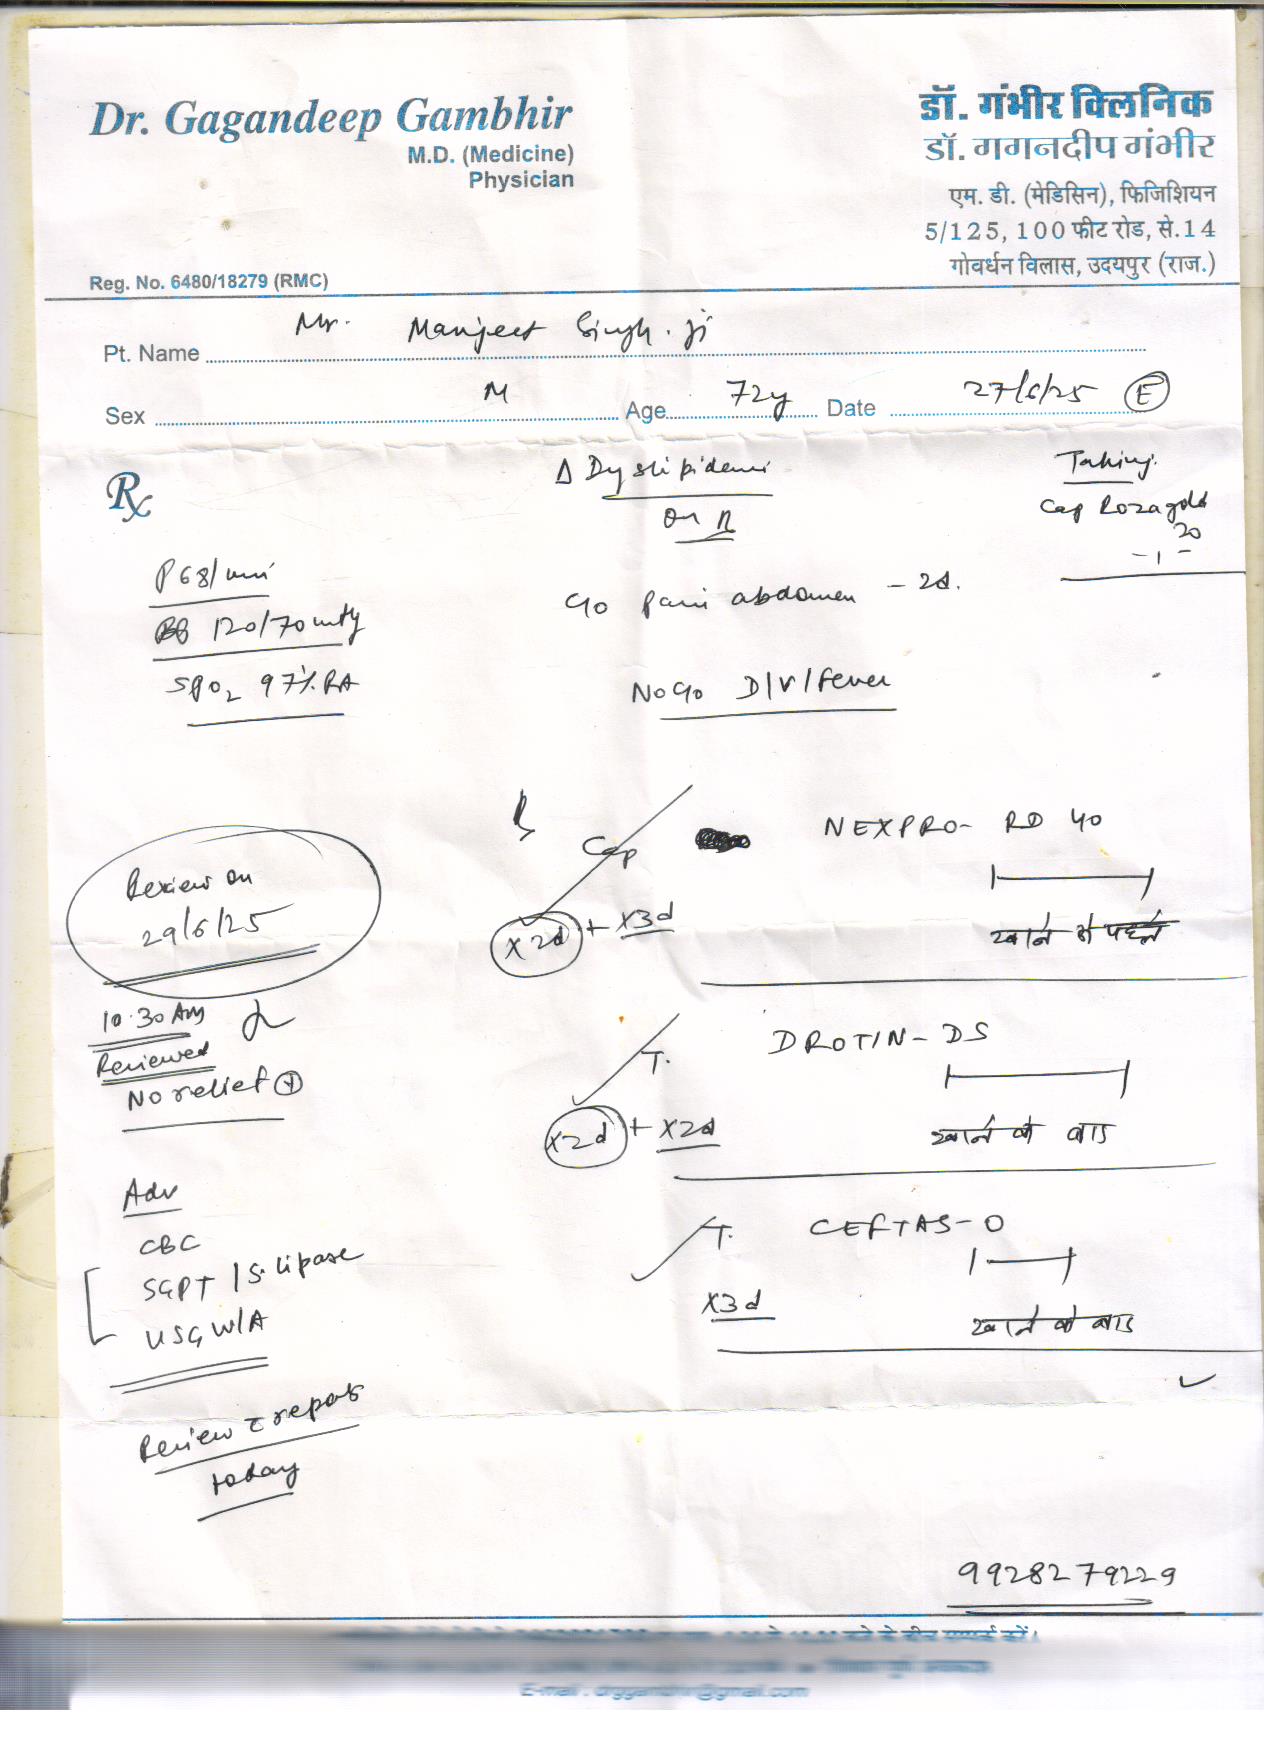 Dr. Gagandeep Gambhir
M.D. (Medicine)
Physician
Reg. No. 6480/18279 (RMC)
डॉ. गंभीर क्लिनिक
डॉ. गगनदीप गंभीर
एम. डी. (मेडिसिन), फिजिशियन
5/125, 100 फीट रोड, से.14
गोवर्धन विलास, उदयपुर (राज.)
Pt. Name Mr. Manjeet Singh. ji
Sex M Age 72y Date 27/6/25 E
Rx
Δ Dyslipidemi
on R
Taking.
Cap Rozagold
20
- 1 -
P 68/min
BP 120/70 mmHg
SPO2 97% RA
C/o pain abdomen - 2d.
No C/o D/V/Fever
R
Cap NEXPRO- RD 40
x2d + x3d
खाने से पहले
T. DROTIN- DS
x2d + x2d
खाने के बाद
T. CEFTAS-O
x3d
खाने के बाद
Review on
29/6/25
10.30 AM
Reviewed
No relief +
Adv
CBC
SGPT / S. lipase
USG W/A
Review c repots
today
9928279229
E-mail : drggambhir@gmail.com